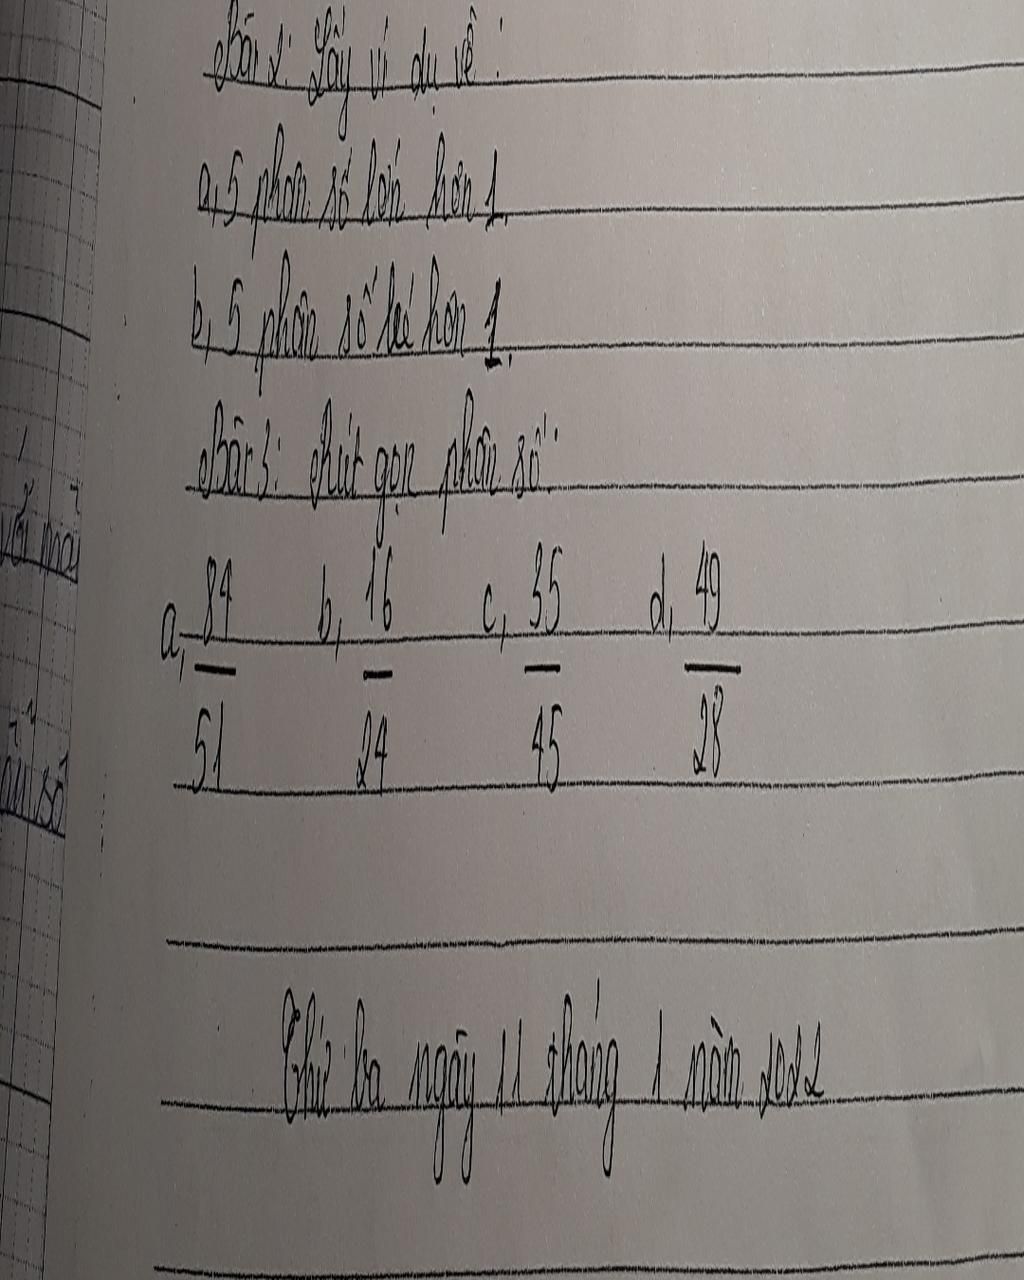 Bài 2: Lấy ví dụ về:
a, 5 phân số lớn hơn 1.
b, 5 phân số bé hơn 1.
Bài 3: Rút gọn phân số:
a, 84/51 b, 16/24 c, 35/45 d, 49/28
Thứ ba ngày 11 tháng 1 năm 2022